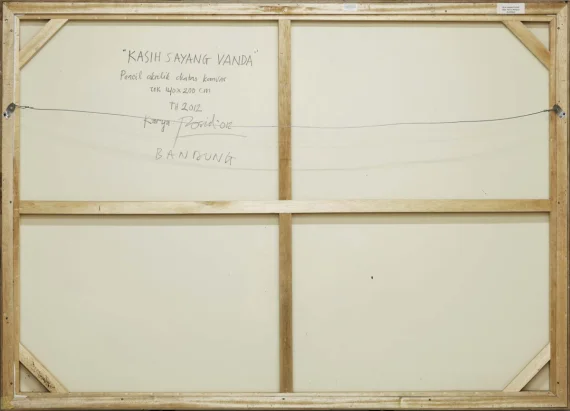 "KASIH SAYANG VANDA"
Pensil akrilik diatas kanvas
UK 140 x 200 cm
TH 2012
Karya
BANDUNG